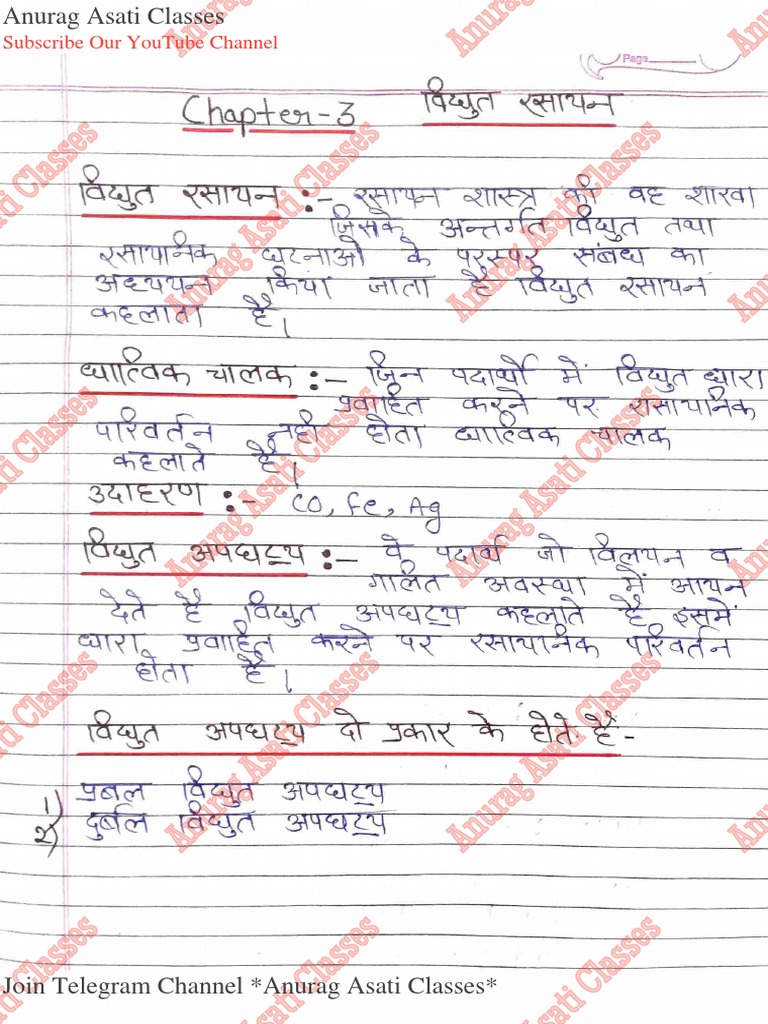 Anurag Asati Classes
Subscribe Our YouTube Channel
Page
Chapter-3 विद्युत रसायन
विद्युत रसायन :- रसायन शास्त्र की वह शाखा
जिसके अन्तर्गत विद्युत तथा
रसायानिक घटनाओ के परस्पर संबंध का
अध्ययन किया जाता है विद्युत रसायन
कहलाता है।
धात्विक चालक :- जिन पदार्थो में विद्युत धारा
प्रवाहित करने पर रासायानिक
परिवर्तन नही होता धात्विक चालक
कहलाते है।
उदाहरण :- Co, Fe, Ag
विद्युत अपघट्य :- वे पदार्थ जो विलयन व
गलित अवस्था में आयन
देते है विद्युत अपघट्य कहलाते है इसमें
धारा प्रवाहित करने पर रसायानिक परिवर्तन
होता है।
विद्युत अपघट्य दो प्रकार के होते है -
1) प्रबल विद्युत अपघट्य
2) दुर्बल विद्युत अपघट्य
Join Telegram Channel *Anurag Asati Classes*